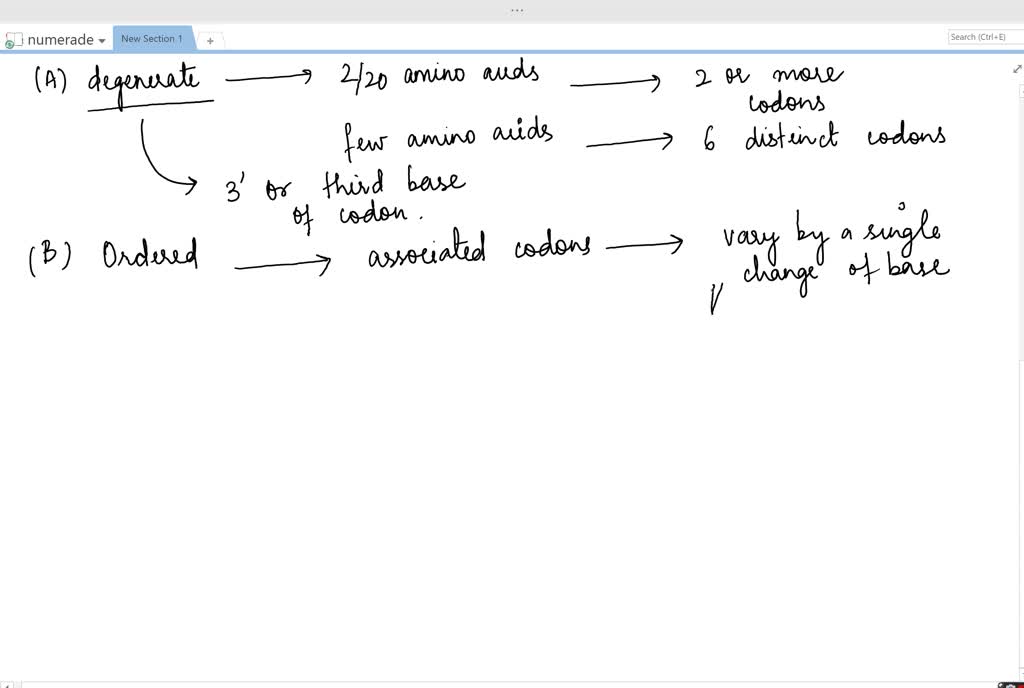 ...
numerade
New Section 1
+
Search (Ctrl+E)
(A) degenerate → 2/20 amino auds → 2 or more codons
few amino acids → 6 distinct codons
3' or third base of codon.
(B) Ordered → associated codons → vary by a single change of base